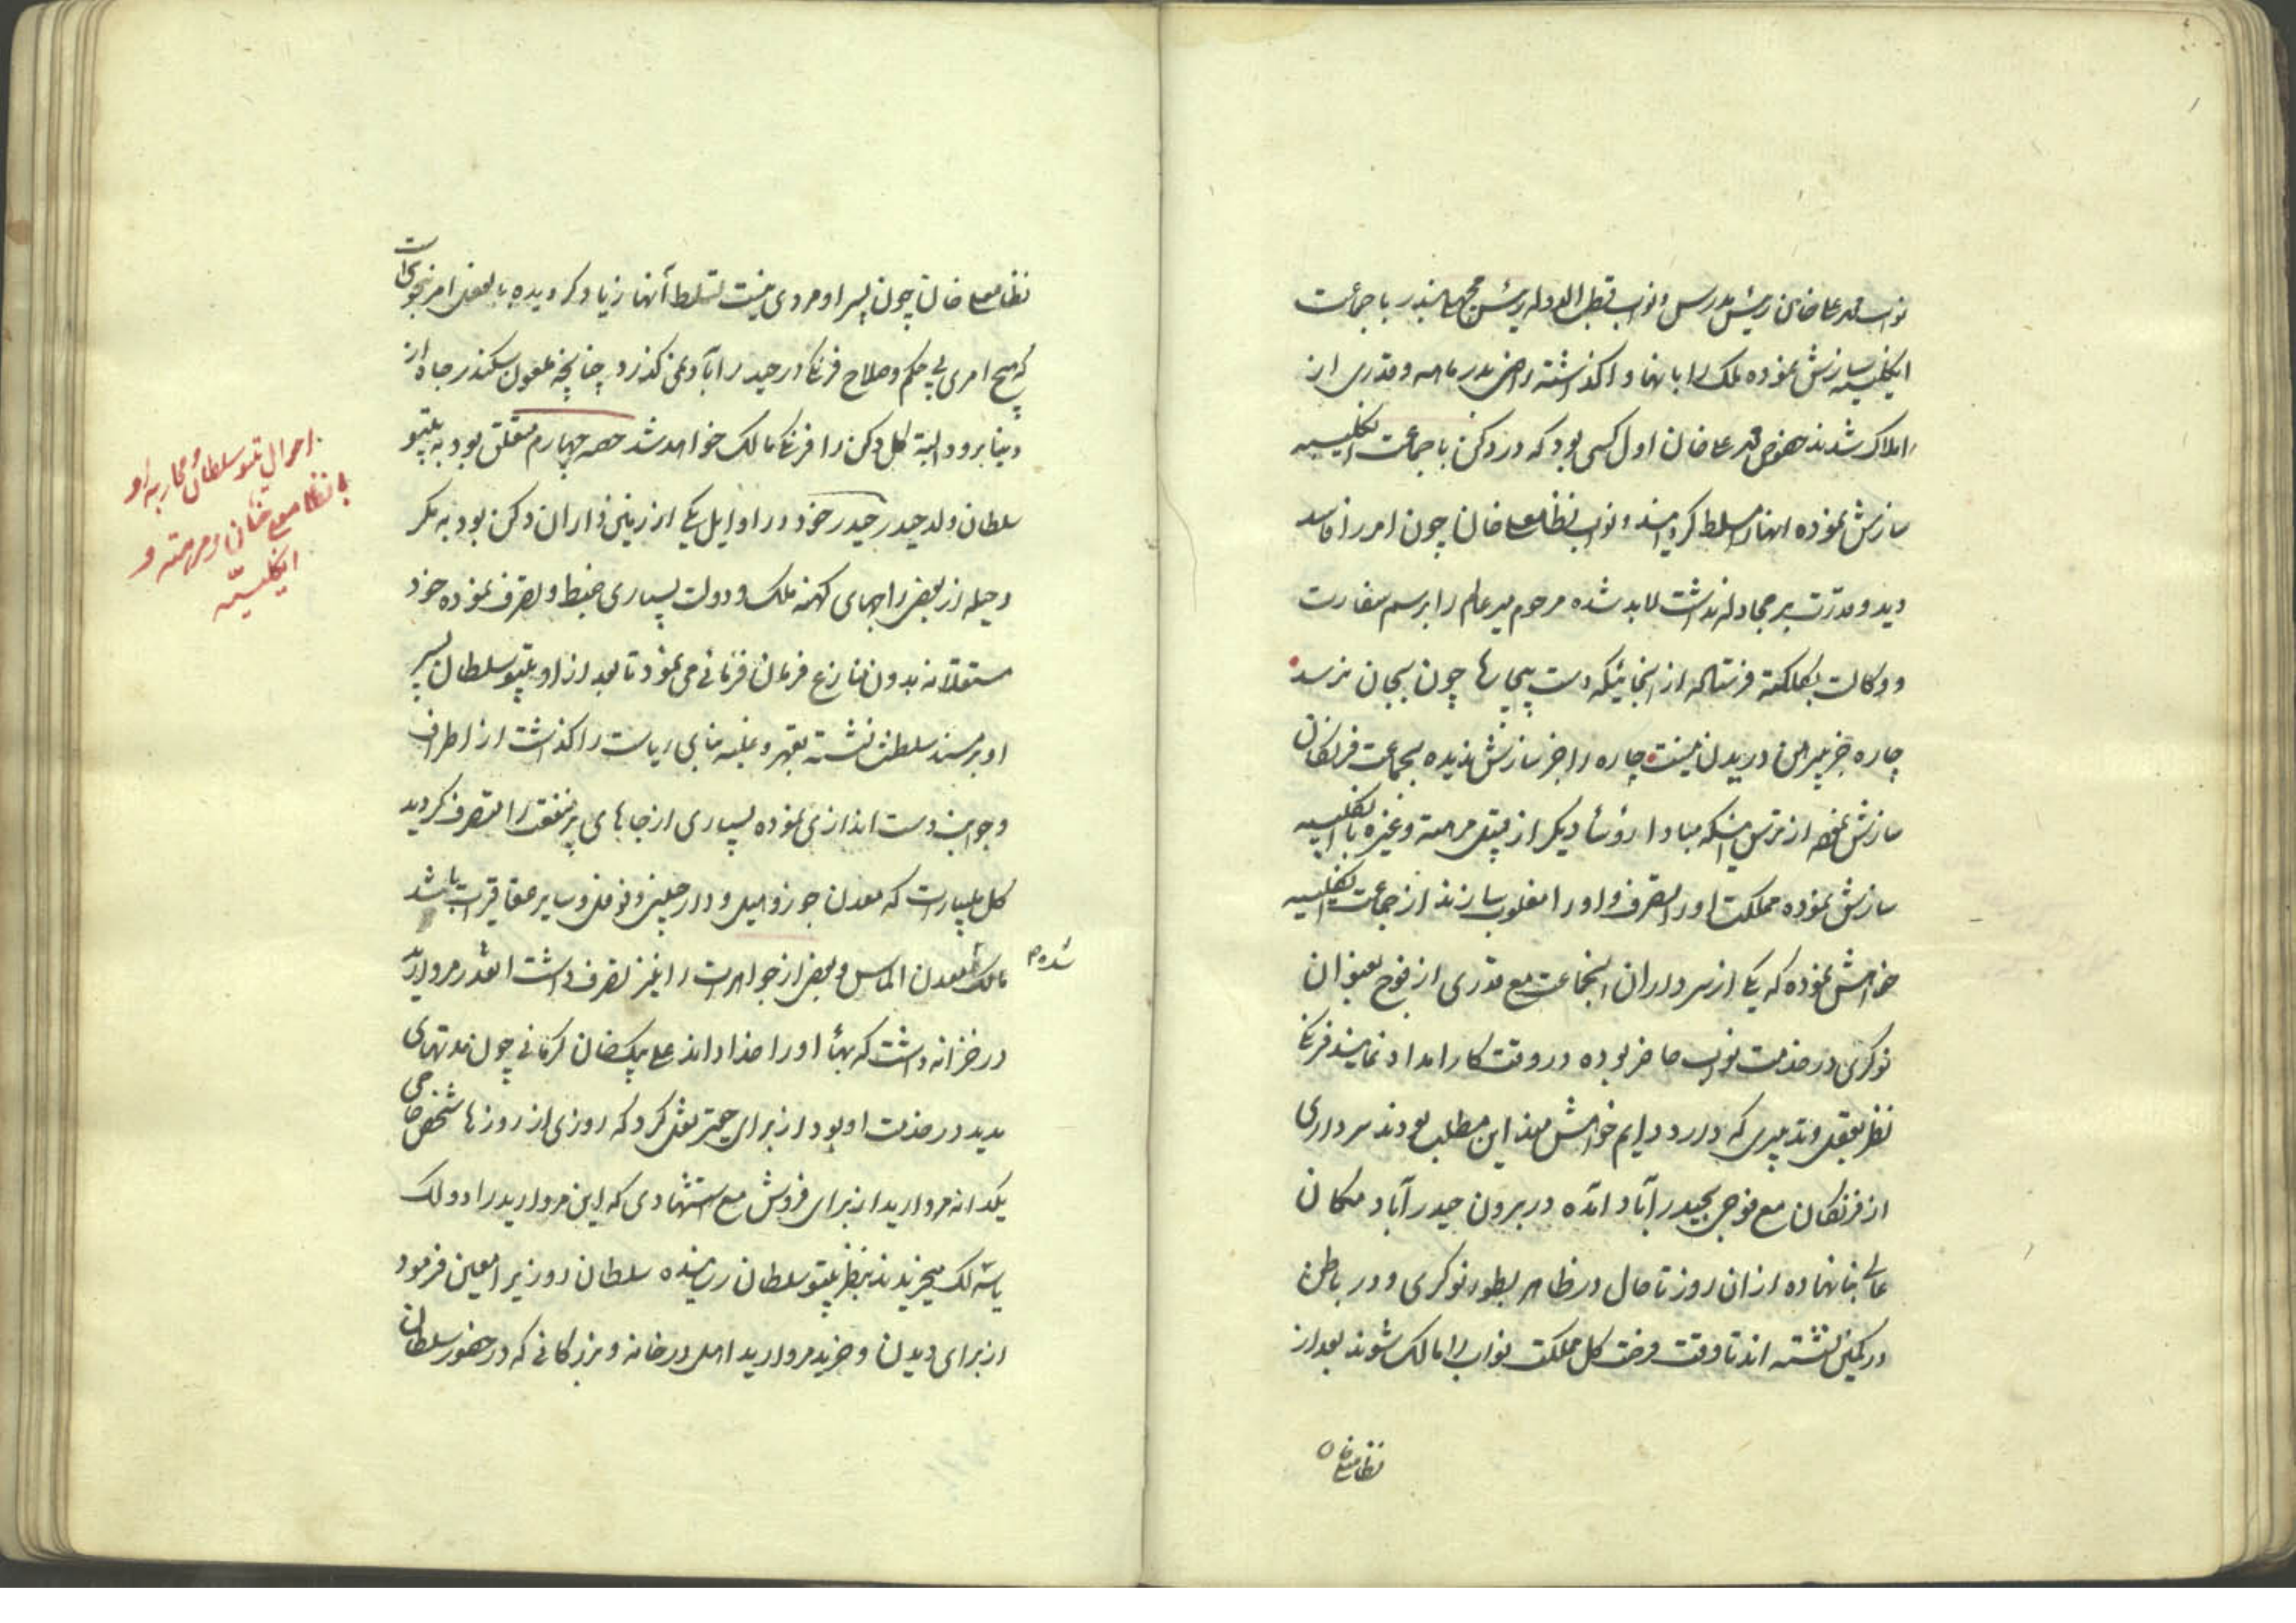 نواب محمد علیخان رئیس مدرس و نواب قطب الدوله رئیس مچهلی بندر با جماعت
انگلیسیه سازش نموده ملک را بانها واگذاشته راضی بدرماهه و قدری از
املاک شدند خصوص محمد علیخان اول کسی بود که در دکن با جماعت انگلیسیه
سازش نموده انها را مسلط گردانید و نواب نظامعلیخان چون امر را فاسد
دید و قدرت بر مجادله نداشت لابد شده مرحوم میر عالم را برسم سفارت
و وکالت بکلکته فرستاد که از انجائیکه دست بیچارها چون بجان نرسد
چاره جز پیرهن دریدن نیست چاره را جز سازش ندیده بجماعت فرنگان
سازش نمود از ترس اینکه مبادا رؤسأ دیگر از قبیل مرهته و غیره با انگلیسیه
سازش نموده مملکت او را متصرف و او را مغلوب سازند از جماعت انگلیسیه
خواهش نموده که یکی از سرداران انجماعت مع قدری از فوج بعنوان
نوکری در خدمت نواب حاضر بوده در وقت کار امداد نمایند فرنگ
نظر بعقل و تدبیری که دارد دایم خواهشمند این مطلب بودند سرداری
از فرنگان مع فوجی بحیدرآباد امده در برون حیدرآباد مکان
عالی بنا نهاده از ان روز تا حال در ظاهر بطور نوکری و در باطن
در کمین نشسته اند تا وقت فرصت کل مملکت نواب را مالک شوند بعد از
نظامعلیخان
نظامعلیخان چون پسر او مردی نیست تسلط آنها زیاد گردیده بالفعل امر بنحوی است
که هیچ امری بی حکم و صلاح فرنگ در حیدرآباد نمی گذرد چنانچه بقول سکندر جاه از
دنیا برود البته کل دکن را فرنگ مالک خواهد شد حصه چهارم متعلق بود به تیپو
سلطان ولد حیدر حیدر خود در اوایل یکی از زمین داران دکن بود به مکر
و حیله از بعض راجهای کهنه ملک و دولت بسیاری ضبط و تصرف نموده خود
مستقلانه بدون منازع فرمان فرمائی می نمود تا بعد از او تیپو سلطان پسر
او بر مسند سلطنت نشسته بقهر و غلبه بنای ریاست را گذاشت از اطراف
و جوانب دست اندازی نموده بسیاری از جاهای پر منفعت را متصرف گردید
کل ملیبار است که معدن جوز و هیل و دارچینی و فوفل و سایر عقاقیرات باشد
مالک شده معدن الماس و بعض از جواهرات را نیز تصرف داشت انقدر مروارید
در خزانه داشت که بهأ او را خدا داند علی بیکخان کرمانی چون مدتهای
مدید در خدمت او بود از برای حقیر نقل کرد که روزی از روزها شخص حاجی
یکدانه مروارید از برای فروش مع استشهادی که این مروارید را دو لک
یا سه لک میخریدند بنظر تیپو سلطان رسانیده سلطان روزی را معین فرمود
از برای دیدن و خرید مروارید اهل درخانه و بزرگانی که در حضور سلطان
احوال تیپو سلطان و محاربه او
با نظامعلیخان و مرهته و
انگلیسیّه